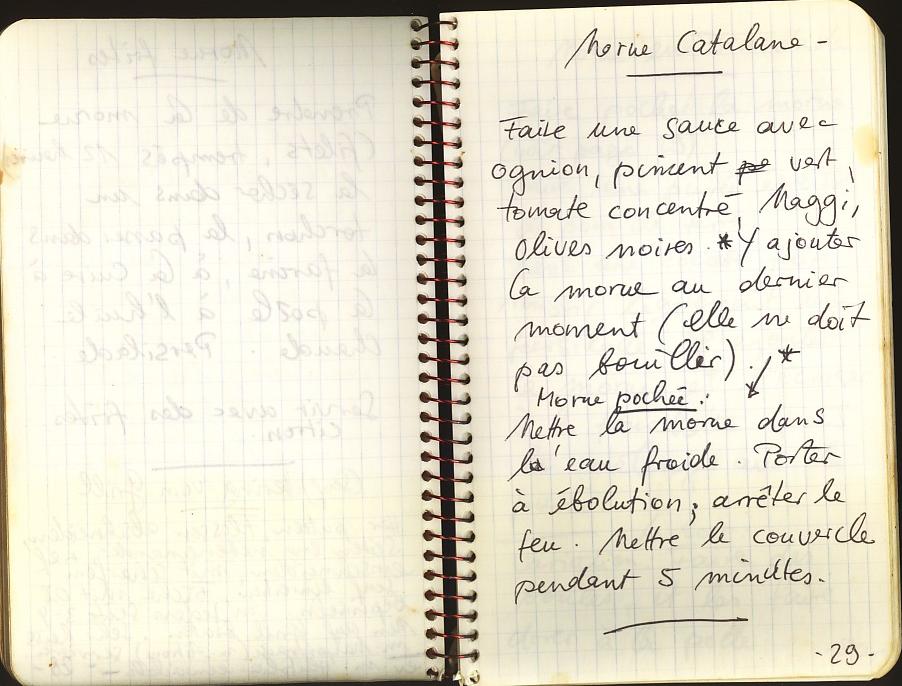 Morue Catalane -
Faire une sauce avec
ognion, piment vert,
tomate concentré, Maggi,
olives noires. * Y ajouter
la morue au dernier
moment (elle ne doit
pas bouillir). *
Morue pochée :
Mettre la morue dans
l'eau froide. Porter
à ébolution ; arrêter le
feu. Mettre le couvercle
pendant 5 minutes.
- 29 -